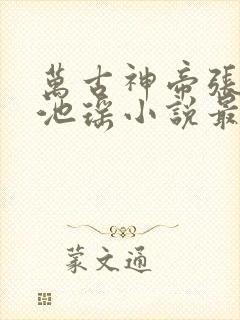 萬古神帝張
池瑤小說最
蒙文通